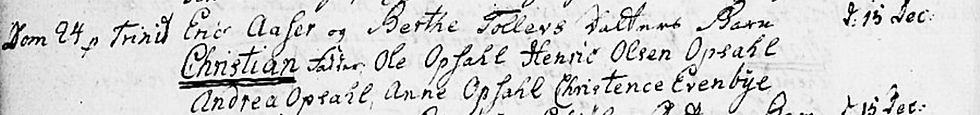 Dom 24 p Trinit Eric Aaser og Berthe Tollers Datters Barn d: 15 Dec:
Christian Fadder Ole Opsahl Henric Olsen Opsahl
Andrea Opsahl, Anne Opsahl Christence Evenbye
d 15 Dec: